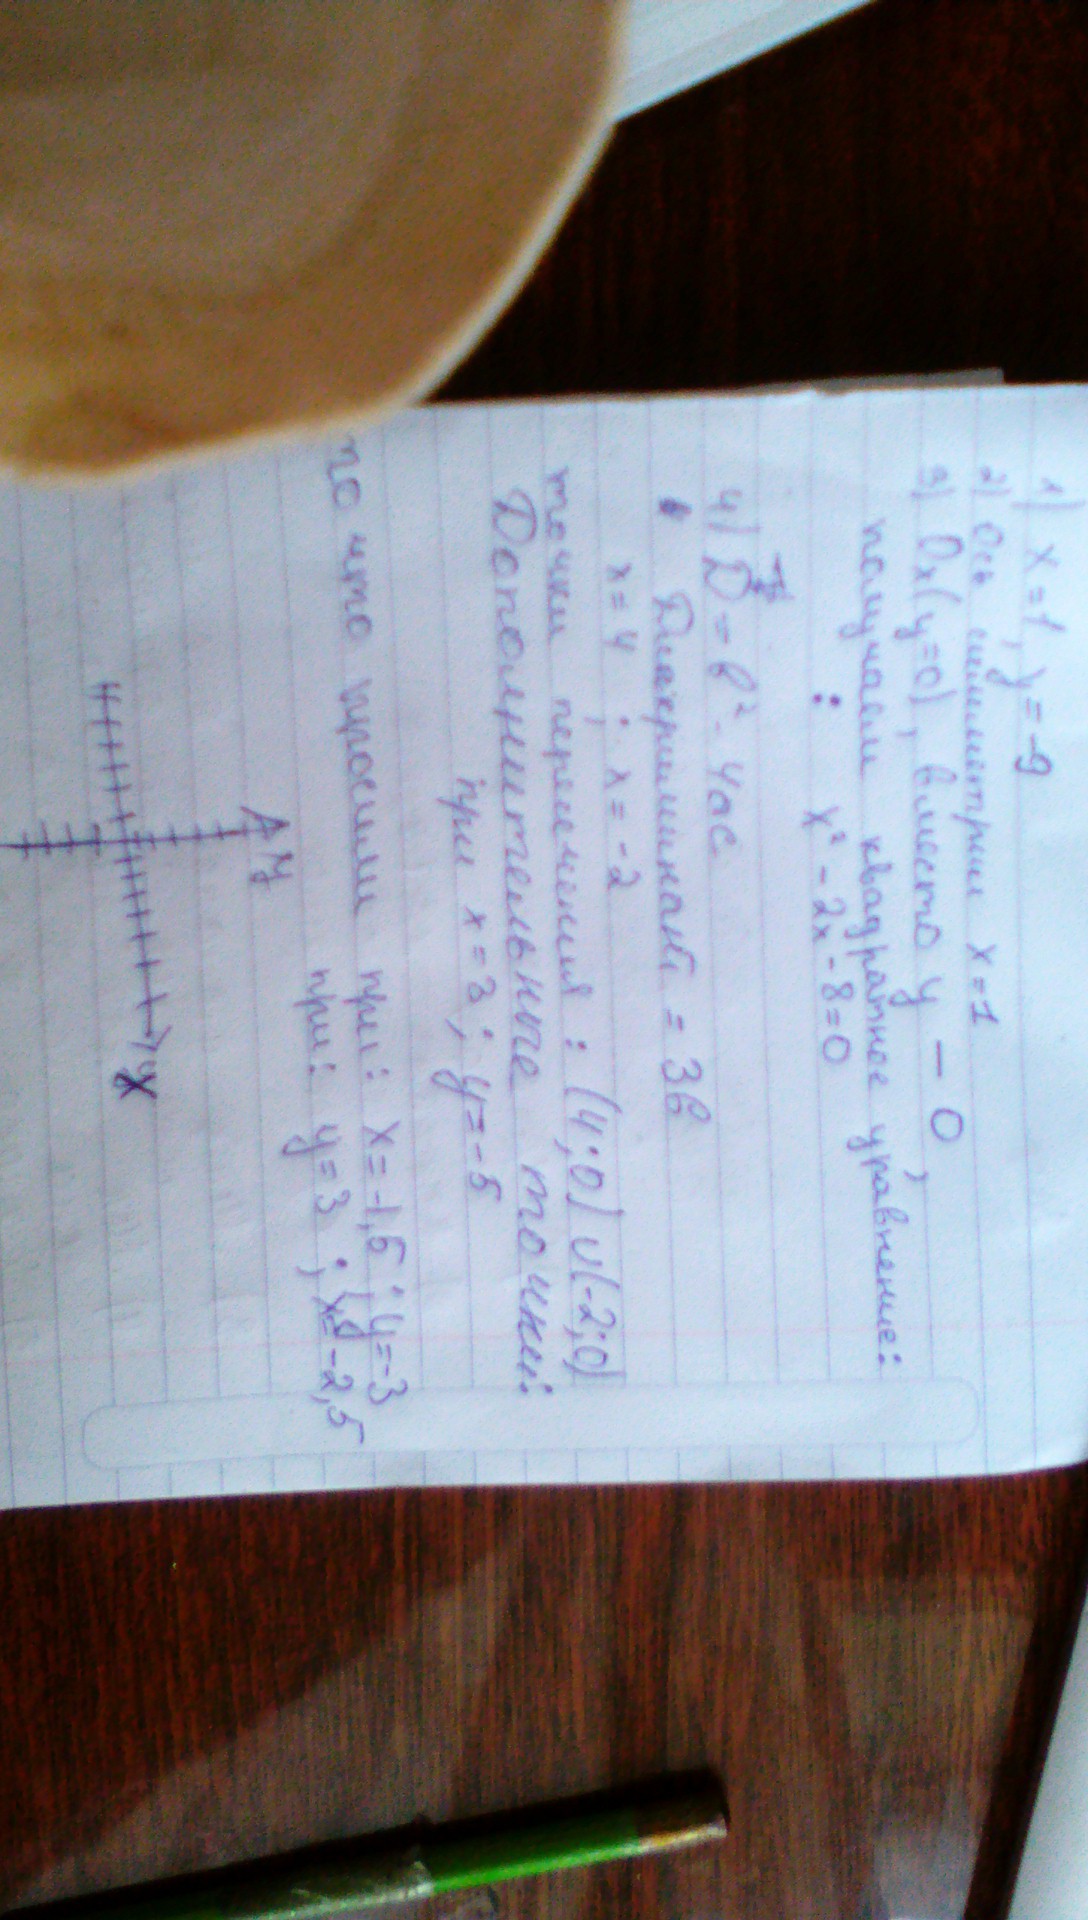 1) x=1, y=-9
2) Ось симметрии x=1
3) Ox(y=0), вместо y — 0,
получаем квадратное уравнение:
: x² - 2x - 8=0
4) D = b² - 4ac
Дискриминант = 36
x=4 ; x=-2
точки пересечения : (4;0) и (-2;0)
Дополнительные точки:
при x=3; y=-5
то что просили при: x=-1,5; y=-3
при: y=3 ; x=-2,5
y
x